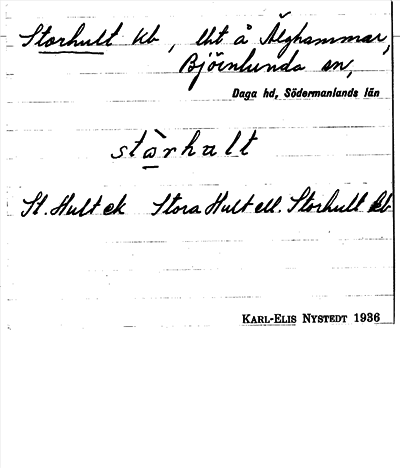 Storhult kb, lht å Älghammar,
Björnlunda sn,
Daga hd, Södermanlands län
stàrhult
St. Hult ek Stora Hult ell. Storhult kb
KARL-ELIS NYSTEDT 1936